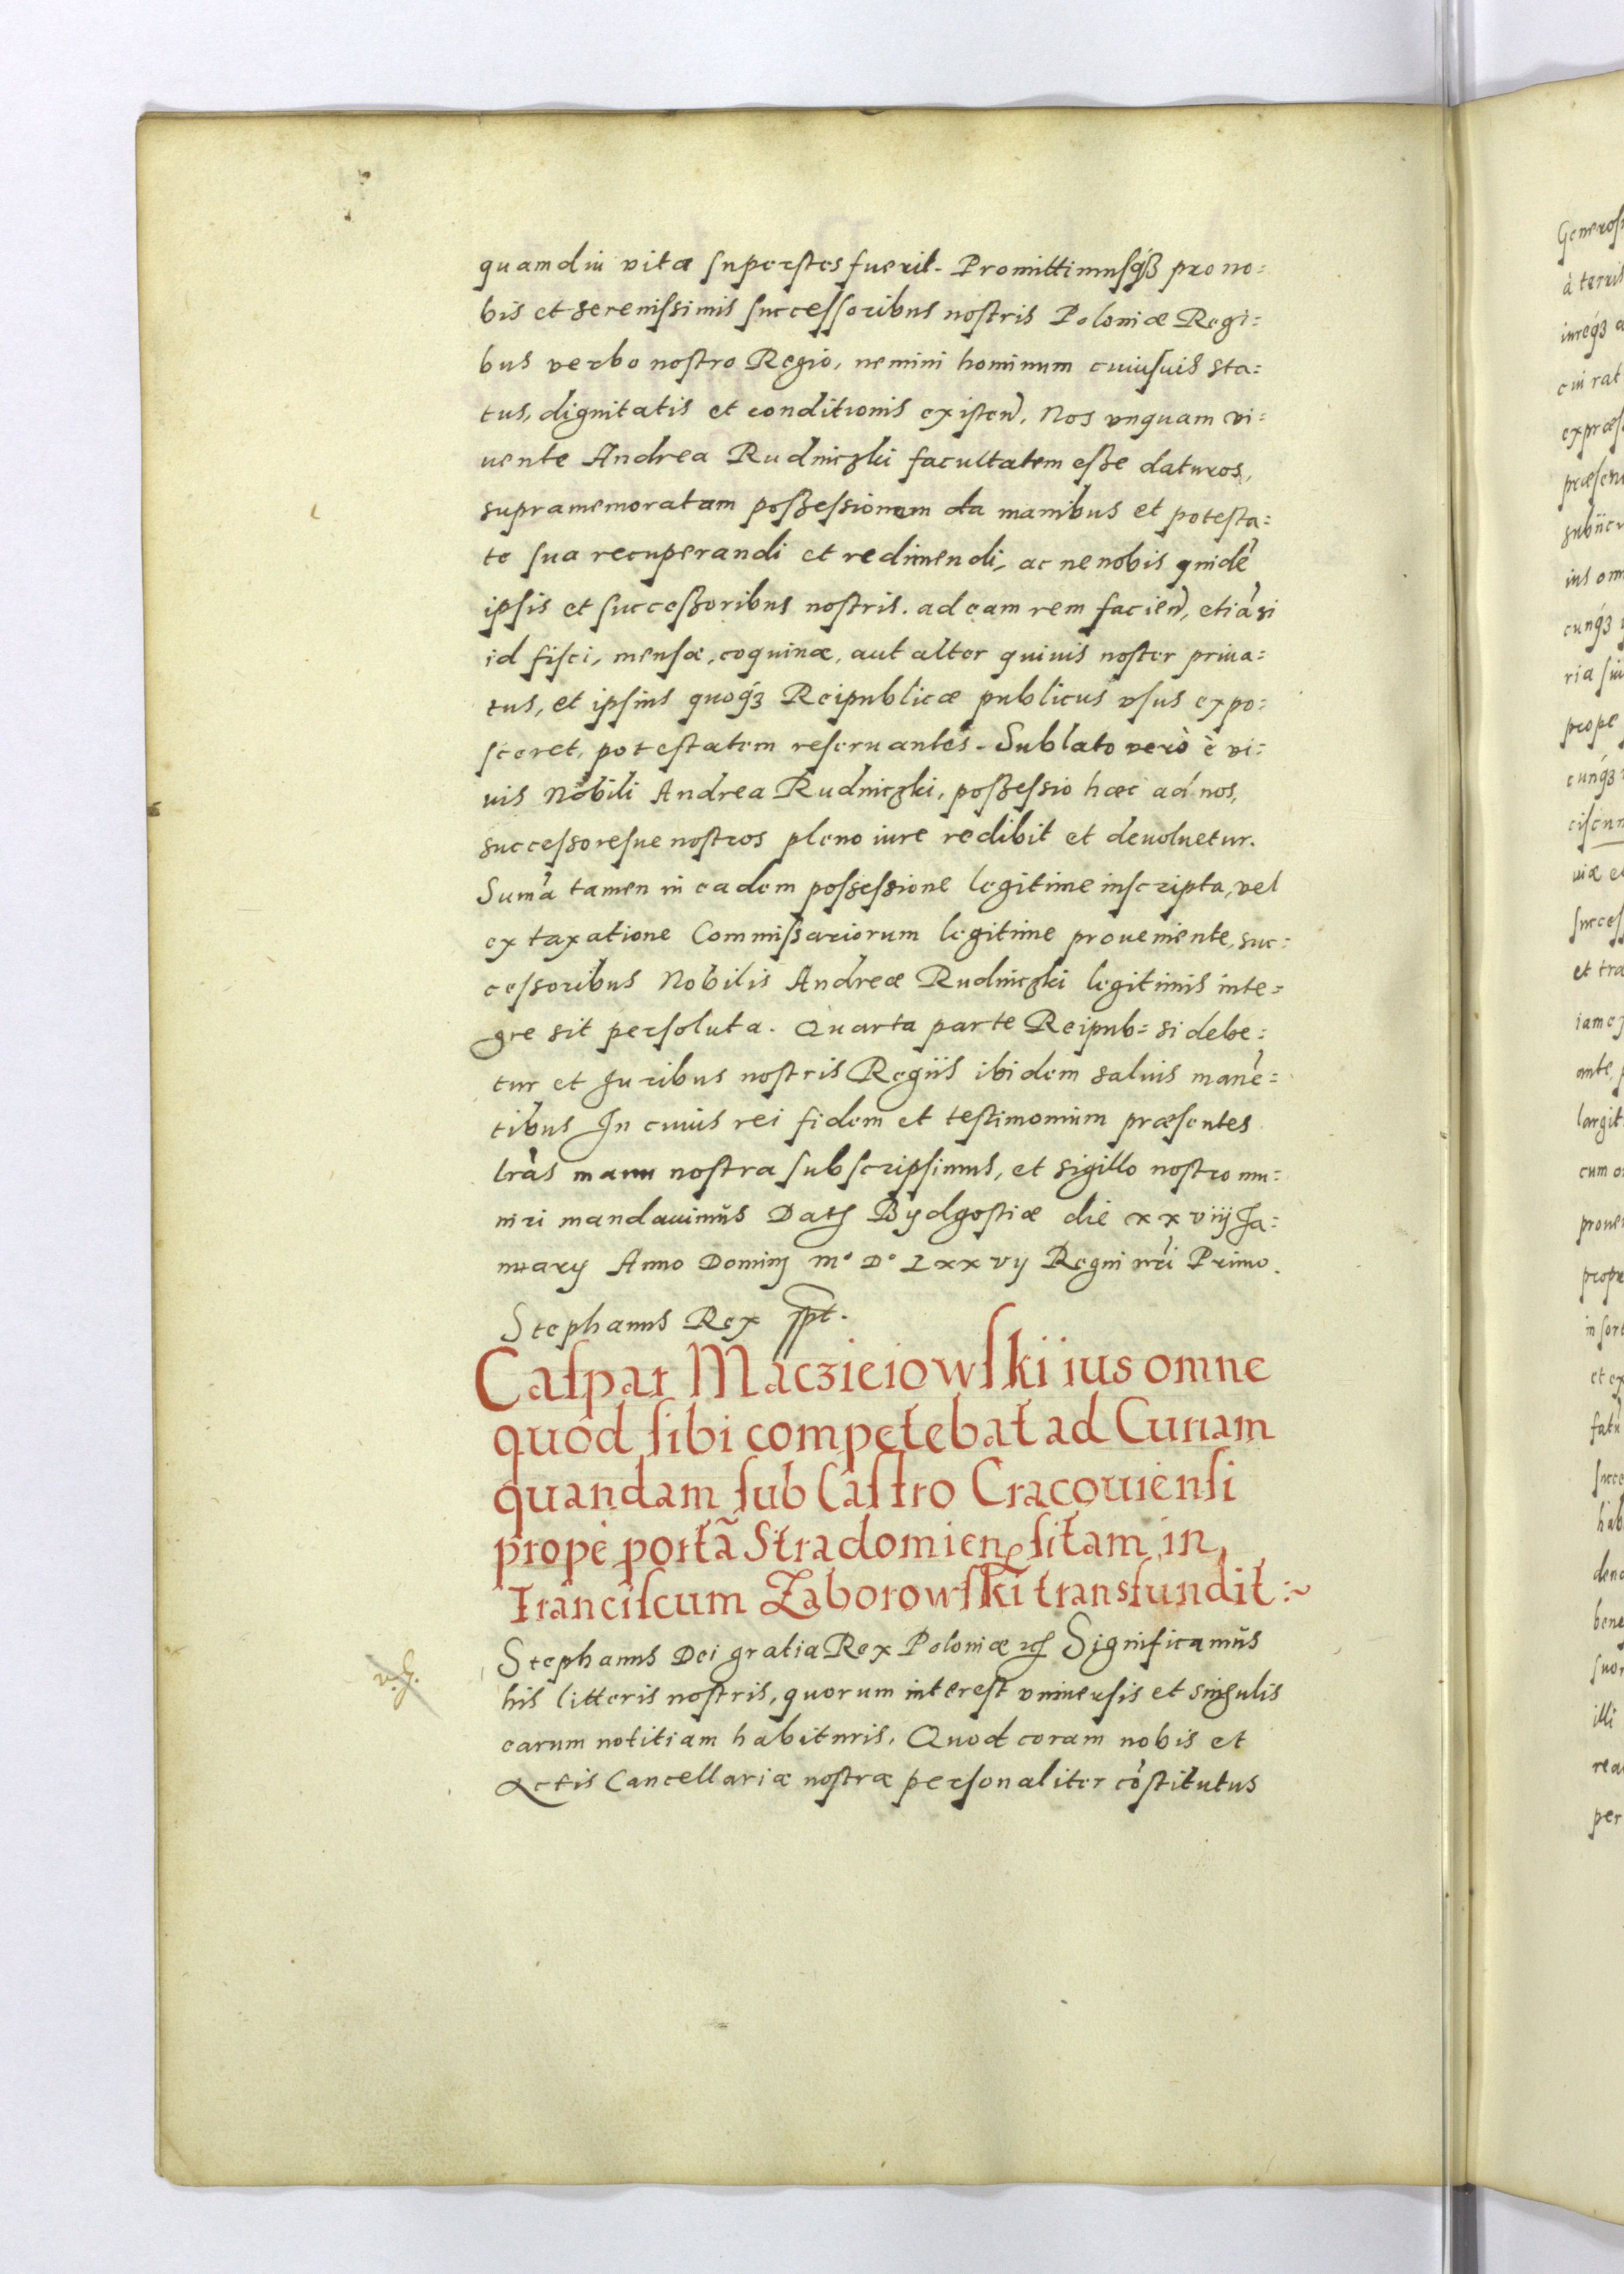 quamdiu vita superstes fuerit. Promittimusq́ꝫ pro no=
bis et serenissimis successoribus nostris Poloniæ Regi=
bus verbo nostro Regio, nemini hominum cuiusuis sta=
tus, dignitatis et conditionis existen̄, Nos vnquam vi=
uente Andrea Rudniczki facultatem esse daturos,
supramemoratam possessionem da manibus et potesta=
te sua recuperandi et redimendi, ac ne nobis quidē
ipsis et successoribus nostris. ad eam rem facien̄, etiā si
id fisci, mensæ, coquinæ, aut alter quiuis noster priua=
tus, et ipsius quoq́ꝫ Reipublicæ publicus vsus expo=
sceret, potestatem reseruantes. Sublato verò è vi=
uis Nobili Andrea Rudniczki, possessio hæc ad nos,
successoresue nostros pleno iure redibit et deuoluetur.
Sum̄a tamen in eadem possessione legitime inscripta, vel
ex taxatione Commissariorum legitime proueniente, suc=
cessoribus Nobilis Andreæ Rudniczki legitimis inte=
gre sit persoluta. Quarta parte Reipub= si debe=
tur et Juribus nostris Regiis ibidem saluis manē=
tibus In cuius rei fidem et testimonium præsentes
lrās manu nostra subscripsimus, et sigillo nostro mu=
niri mandauimus Datꝭ Bydgostiæ die xxviij Ja=
nuarij Anno Dominj M° D° Lxxvij Regni nrī Primo.
Stephanus Rex sspt.
Caspar Maczieiowski ius omne
quod sibi competebat ad Curiam
quandam sub Castro Cracouiensi
prope portã Stradomienꝭ sitam in
Franciscum Zaborowski transfundit :~
Stephanus Dei gratia Rex Poloniæ ꝛcꝭ Significamus
his litteris nostris, quorum interest vniuersis et singulis
earum notitiam habituris, Quod coram nobis et
Actis Cancellariæ nostræ personaliter cōstitutus